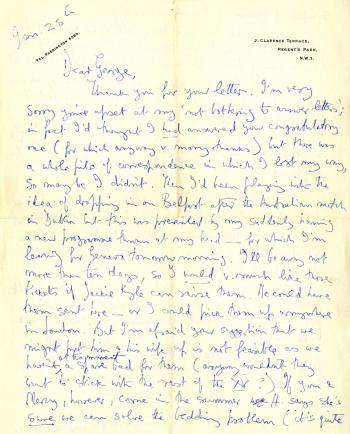 Jan 25th
TEL. PADDINGTON
2, CLARENCE TERRACE,
REGENT'S PARK,
N.W.1.
Dear George,
Thank you for your letter. I'm very
sorry you're upset at my 'not bothering to answer letters';
in fact I'd thought I had answered your congratulatory
one (for which anyway v. many thanks) but there was
a whole pile of correspondence in which I lost my way,
so maybe I didn't. Then I'd been playing with the
idea of dropping in on Belfast after the Australian match
in Dublin but this was prevented by my suddenly having
a new programme thrown at my head — for which I'm
leaving for Geneva tomorrow morning. I'll be away not
more than ten days, so I would v. much like those
tickets if Jackie Kyle can raise them. He could have
them sent here — or I could pick them up anywhere
in London. But I'm afraid your suggestion that we
might put him & his wife up is not feasible as we
haven't at the moment a spare bed for them (anyway wouldn't they
want to stick with the rest of the XV?) If you &
Mercy, however, come in the summer H. says she's
sure we can solve the bedding problem (it's quite